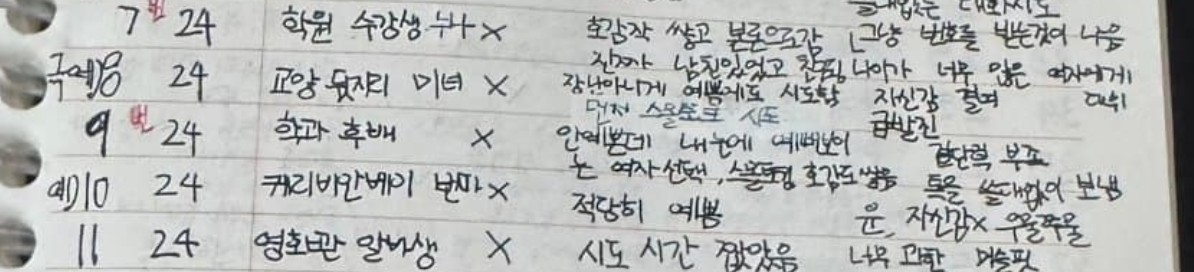 쓸데없는 대화시도
7번 24 학원 수강생 누나 X 호감작 쌓고 본론으로감 그냥 번호를 받는것이 나음
8 24 교양 뒷자리 미녀 X 남친있었고 나이가 너무 많은 여자에게
장난아니게 예쁨에도 시도함 자신감 결여
먼저 스몰토크 시도 급발진
9번 24 학과 후배 X 안예쁜데 내눈에 예뻐보이 결단력 부족
는 여자선택, 스몰토킹 호감도쌓음 톡을 쓸데없이 보냄
10 24 캐리비안베이 X
적당히 예쁨 운, 자신감X 우물쭈물
11 24 영화관 알바생 X 시도 시간 짧았음 너무 과한